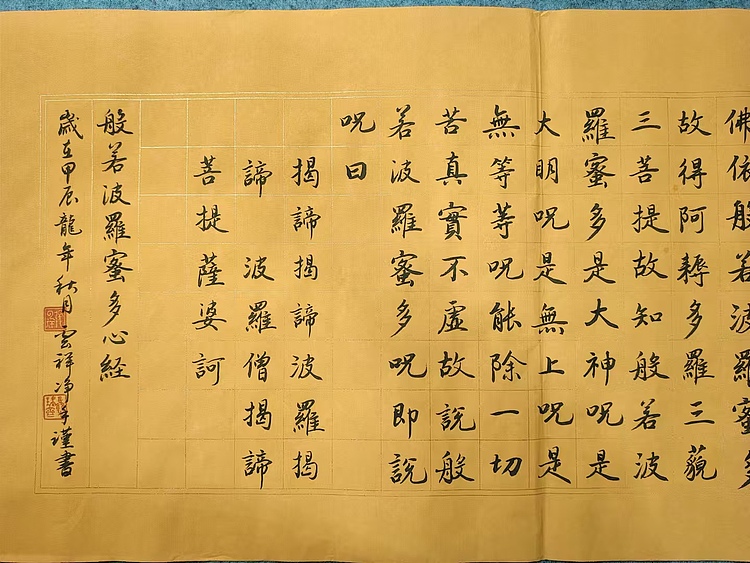 佛依般若波羅蜜多
故得阿耨多羅三藐
三菩提故知般若波
羅蜜多是大神呪是
大明呪是無上呪是
無等等呪能除一切
苦真實不虛故說般
若波羅蜜多呪即說
呪曰
揭諦揭諦波羅揭
諦 波羅僧揭諦
菩提薩婆訶
般若波羅蜜多心経
歲在甲辰龍年秋月雲祥净手謹書